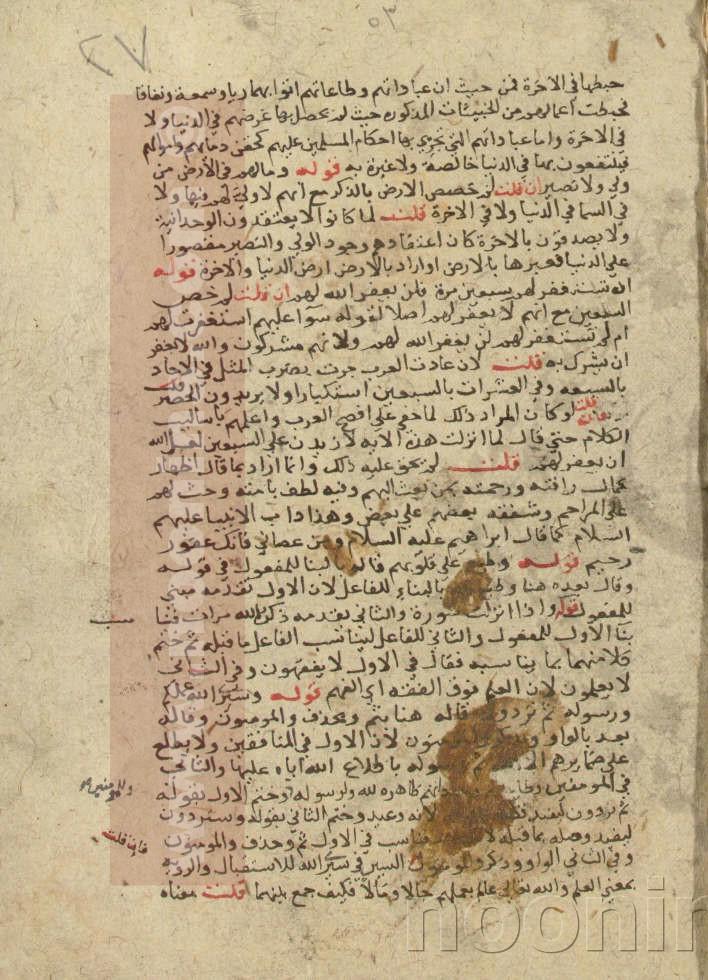 ٥٣
٢٧
حبطها في الآخرة فمن حيث ان عباداتهم وطاعاتهم اتوا بها ريا وسمعة ونفاقا
فحبطت اعمالهم من الحيثيات المذكوره حيث لم يحصل بها غرضهم في الدنيا ولا
في الآخرة واما عباداتهم التي تجري بها احكام المسلمين عليهم كحقن دمائهم واموالهم
فينتفعون بها في الدنيا خالصة ولا عبرة به قوله ومالهم في الارض من
ولي ولا نصير ان قلت لم خصص الارض بالذكر مع انهم لا ولي لهم فيها ولا
في السما في الدنيا ولا في الآخرة قلت لما كانوا لا يعتقدون الوحدانية
ولا يصدقون بالآخرة كان اعتقادهم وجود الولي والنصير مقصورا
على الدنيا فعبر عنها بالارض او اراد بالارض ارض الدنيا والآخرة قوله
ان تستغفر لهم سبعين مرة فلن يغفر الله لهم ان قلت لم خص
السبعين مع انهم لا يغفر لهم اصلا لقوله سوآ عليهم استغفرت لهم
ام لم تستغفر لهم لن يغفر الله لهم ولانهم مشركون والله لا يغفر
ان يشرك به قلت لان عادت العرب جرت بضرب المثل في الآحاد
بالسبعه وفي العشرات بالسبعين استكثارا ولا يريدون الحصر
فان قلت لو كان المراد ذلك لما خفي على افصح العرب واعلمهم باساليب
الكلام حتى قال لما انزلت هذه الآيه لازيدن على السبعين لعل الله
ان يغفر لهم قلت لم يخف عليه ذلك وانما اراد بما قال اظهار
كمال رافته ورحمته بمن بعث اليهم وفيه لطف بامته وحث لهم
على المراحم وشفقه بعضهم على بعض وهذا داب الانبيا عليهم
السلام كما قال ابراهيم عليه السلام ومن عصاني فانك غفور
رحيم قوله وطبع على قلوبهم قاله بالبنا للمفعول في قوله
وقال بعده هنا وطبع بالبناء للفاعل لان الاول تقدمه مبني
للمفعول قوله واذا انزلت سورة والثاني تقدمه ذكر الله مرات فنا
بنا الاول للمفعول والثاني للفاعل ليناسب الفاعل ما قبله ثم ختم
كلا منهما بما يناسبه فقال في الاول لا يفقهون وفي الثاني
لا يعلمون لان العلم فوق الفقه اي الفهم قوله وسيرى الله عملكم
ورسوله ثم تردون قاله هنا بثم وبحذف والمومنون وقاله
بعد بالواو وبذكر والمومنون لان الاول في المنافقين ولا يطلع
على ضمايرهم الا الله ورسوله باطلاع الله اياه عليها والثاني
في المومنين وطاعاتهم ظاهره لله ولرسوله وختم الاول بقوله
ثم تردون ليفيد لانه وعيد وختم الثاني بقوله وستردون
ليفيد وصله بما قبله لانه فناسب في الاول ثم وحذف والمومنون
وفي الثاني الواو وذكر والمومنون السين في سيرى الله للاستقبال والرويه
بمعنى العلم والله تعالى عالم بعملهم حالا ومآلا فكيف جمع بينهما قلت معناه
وللمومنين
فان قلت
noonir